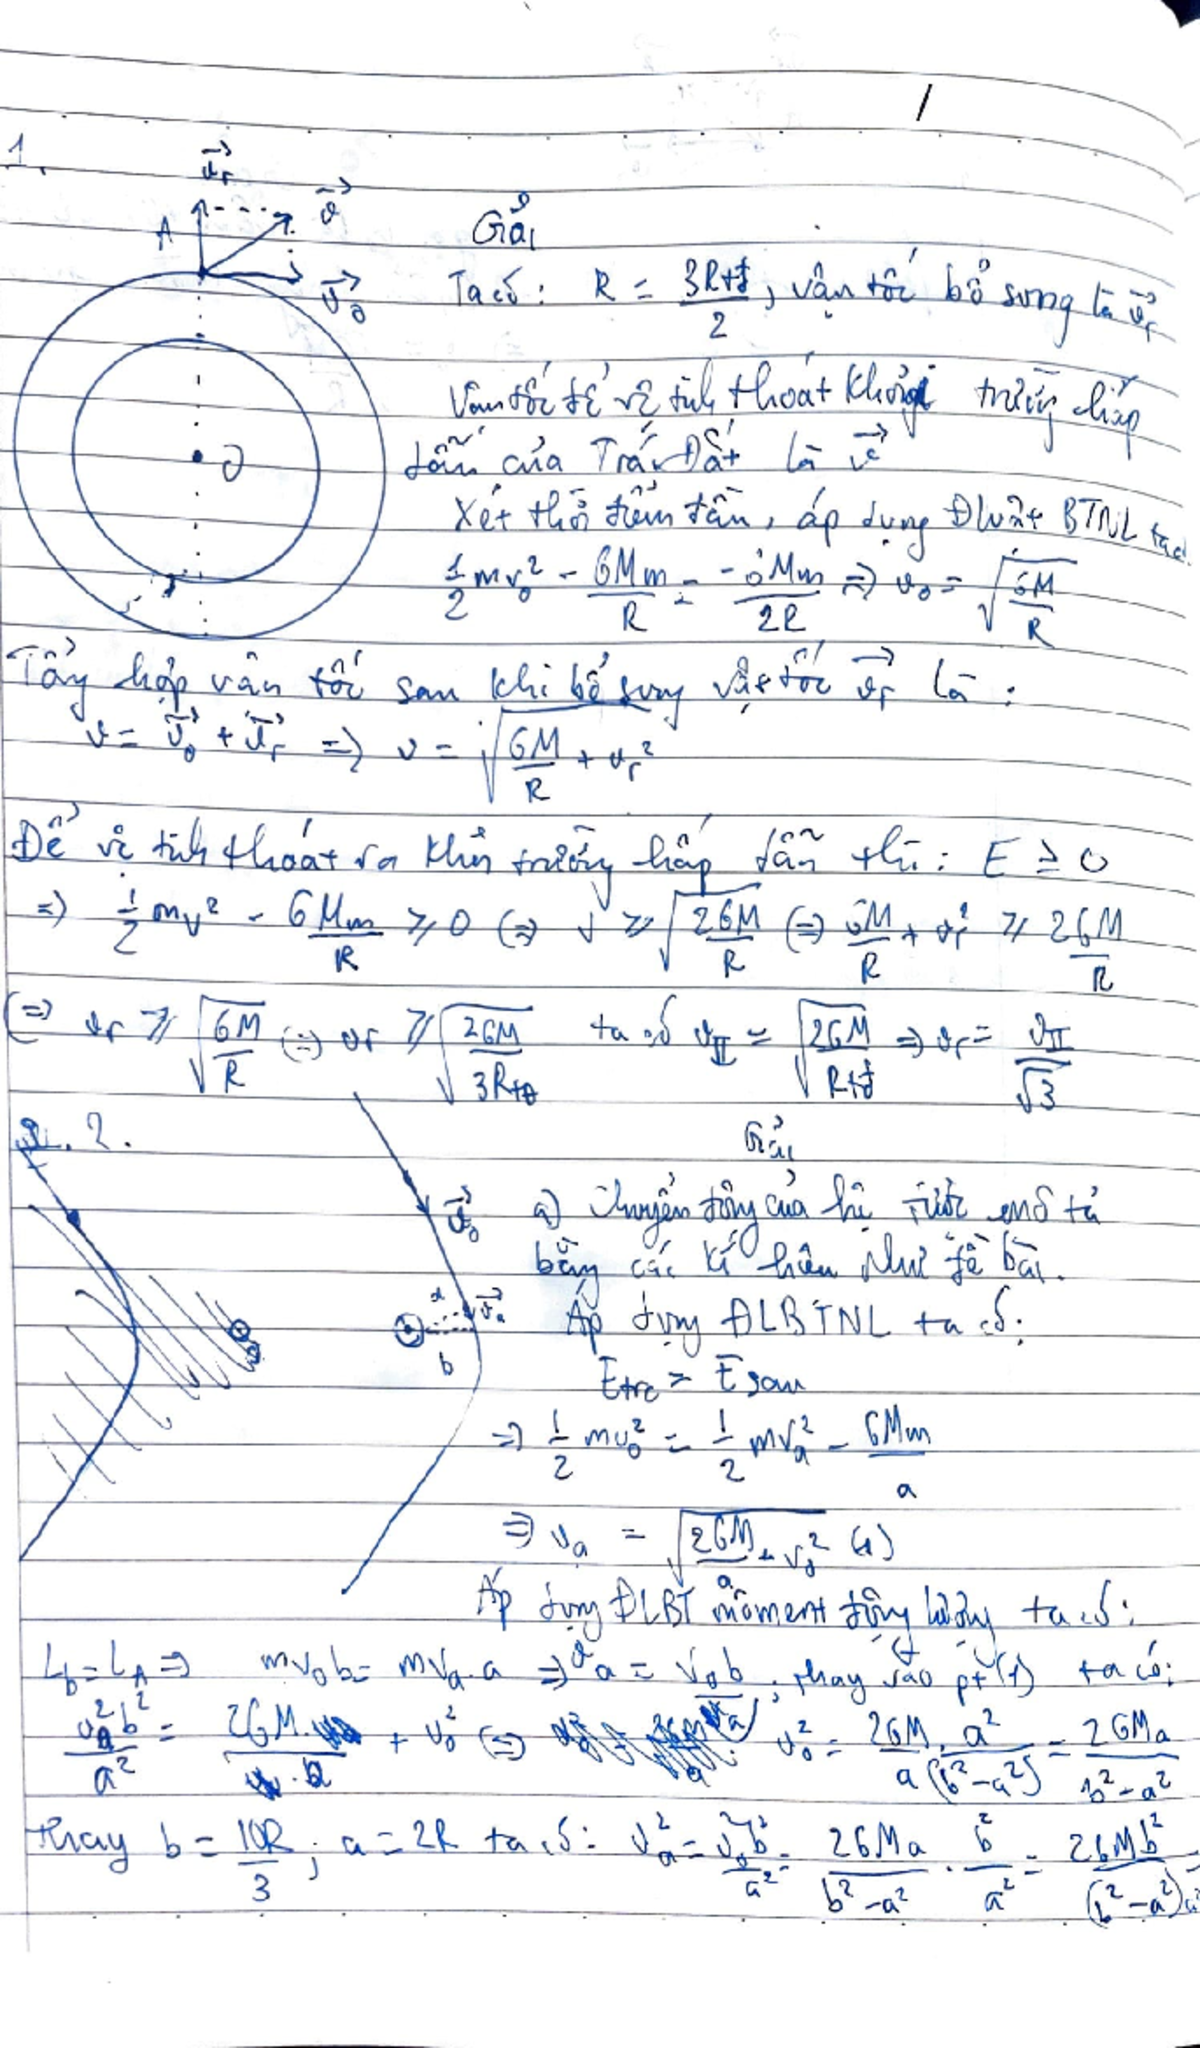 1
1.
Giải
A
O
Ta có: R = 3Rtđ/2, vận tốc bổ sung là v⃗r
Vận tốc để vệ tinh thoát khỏi trường hấp
dẫn của Trái Đất là v⃗
Xét thời điểm đầu, áp dụng ĐLuật BTNL ta có
1/2 mv₀² - GMm/R = -GMm/2R => v₀ = √(GM/R)
hợp vận tốc sau khi bổ sung vận tốc v⃗r là:
v = v⃗₀ + v⃗r => v = √(GM/R + vr²)
Để vệ tinh thoát ra khỏi trường hấp dẫn thì: E ≥ 0
=> 1/2 mv² - GMm/R ≥ 0 (=) v ≥ √(2GM/R) (=) GM/R + vr² ≥ 2GM/R
(=) vr ≥ √(GM/R) (=) vr ≥ √(2GM/3Rtđ) ta có vII = √(2GM/Rtđ) => vr = vII/√3
2.
Giải
v⃗₀
a) Chuyển động của hệ được mô tả
bằng các kí hiệu như đề bài.
a v⃗a
b
Áp dụng ĐLBTNL ta có:
Etrc = Esau
=> 1/2 mv₀² = 1/2 mva² - GMm/a
=> va = √(2GM/a + v₀²) (1)
Áp dụng ĐLBT môment động lượng ta có:
Lb = LA => mv₀b = mva.a => va = v₀b/a; thay vào pt (1) ta có:
v₀²b²/a² = 2GM/a + v₀² (=) v₀² = 2GM/a . a²/(b²-a²) = 2GMa/b²-a²
thay b = 10R/3; a = 2R ta có: va² = v₀²b²/a² = 2GMa/b²-a² . b²/a² = 2GMb²/(b²-a²)a